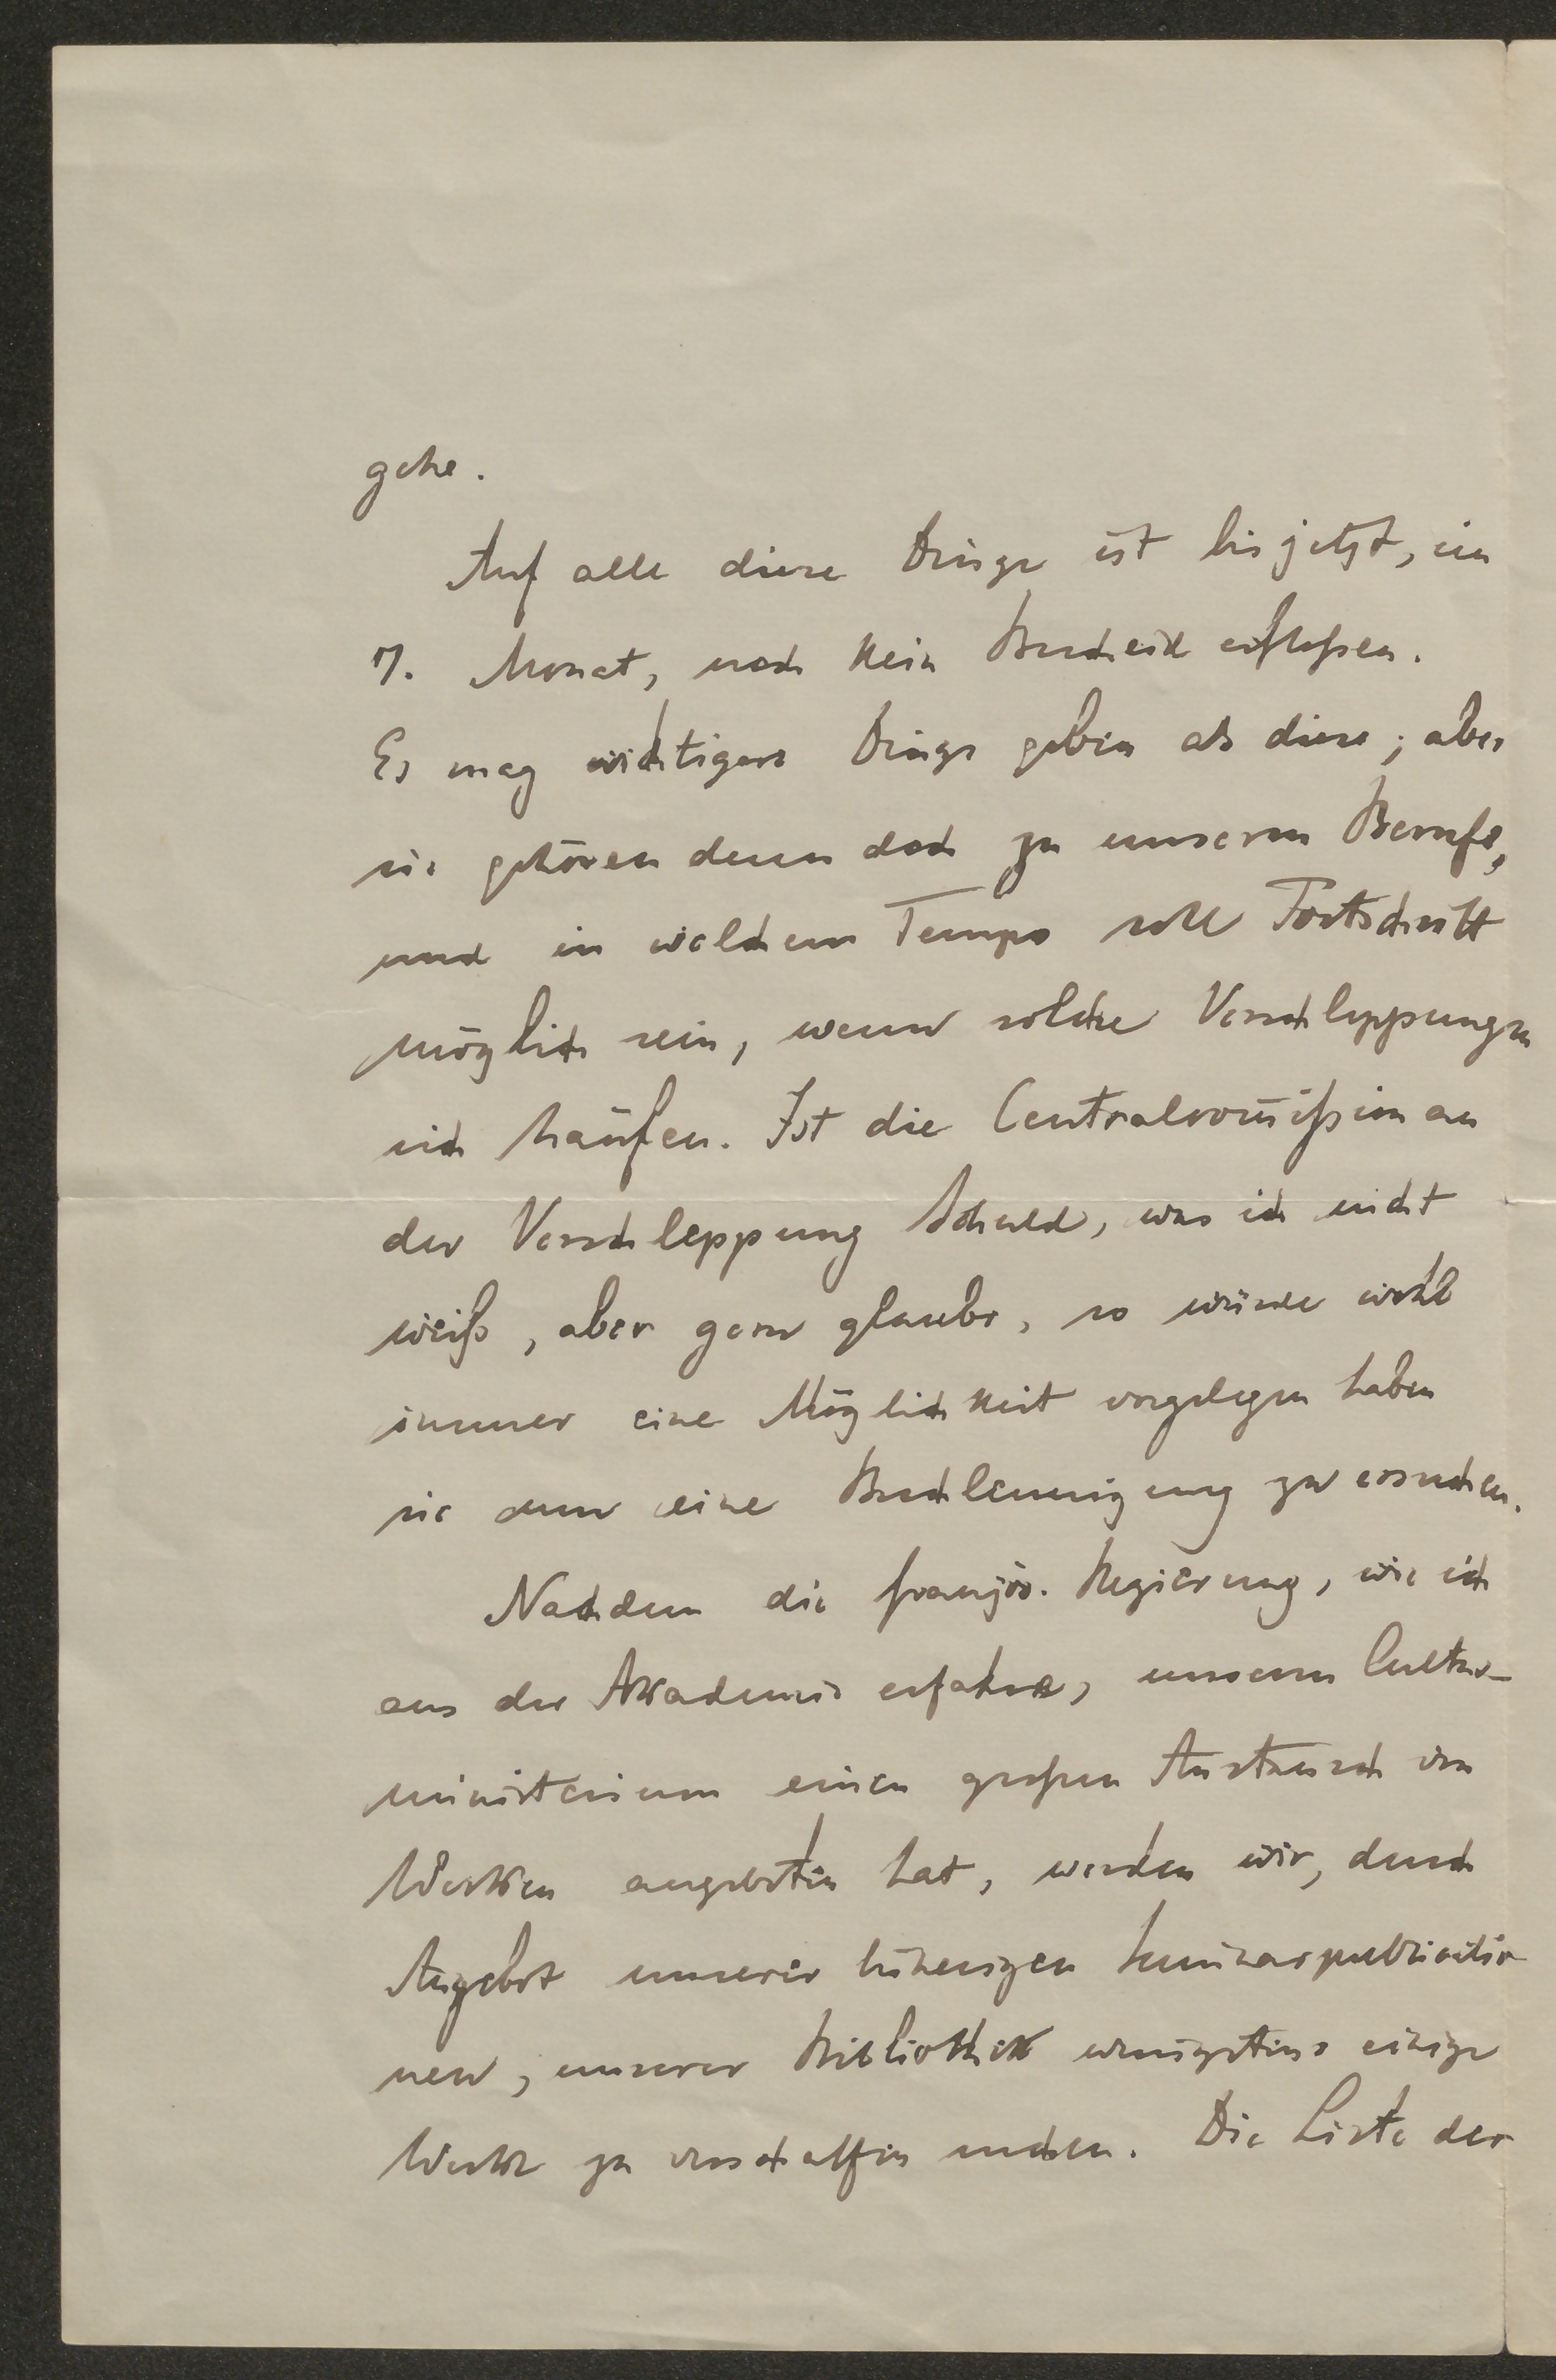 gehe.
Auf alle diese Dinge ist bis jetzt, im
7. Monat, noch kein Bescheid erflossen.
Es mag wichtigere Dinge geben als diese; aber
sie gehören denn doch zu unserem Berufe,
und in welchem Tempo soll Fortschritt
möglich sein, wenn solche Verschleppungen
sich häufen. Ist die Centralcom̄ission an
der Verschleppung Schuld, was ich nicht
weiß, aber gern glaube, so würde wohl
immer eine Möglichkeit vorgelegen haben
sie um eine Beschleunigung zu ersuchen.
Nachdem die französ. Regierung, wie ich
aus der Akademie erfahre, unserem Cultus-
ministerium einen großen Austausch von
Werken angeboten hat, werden wir, durch
Angebot unserer bisherigen Seminarpublicatio-
nen, unserer Bibliothek wenigstens einige
Werke zu verschaffen suchen. Die Liste der